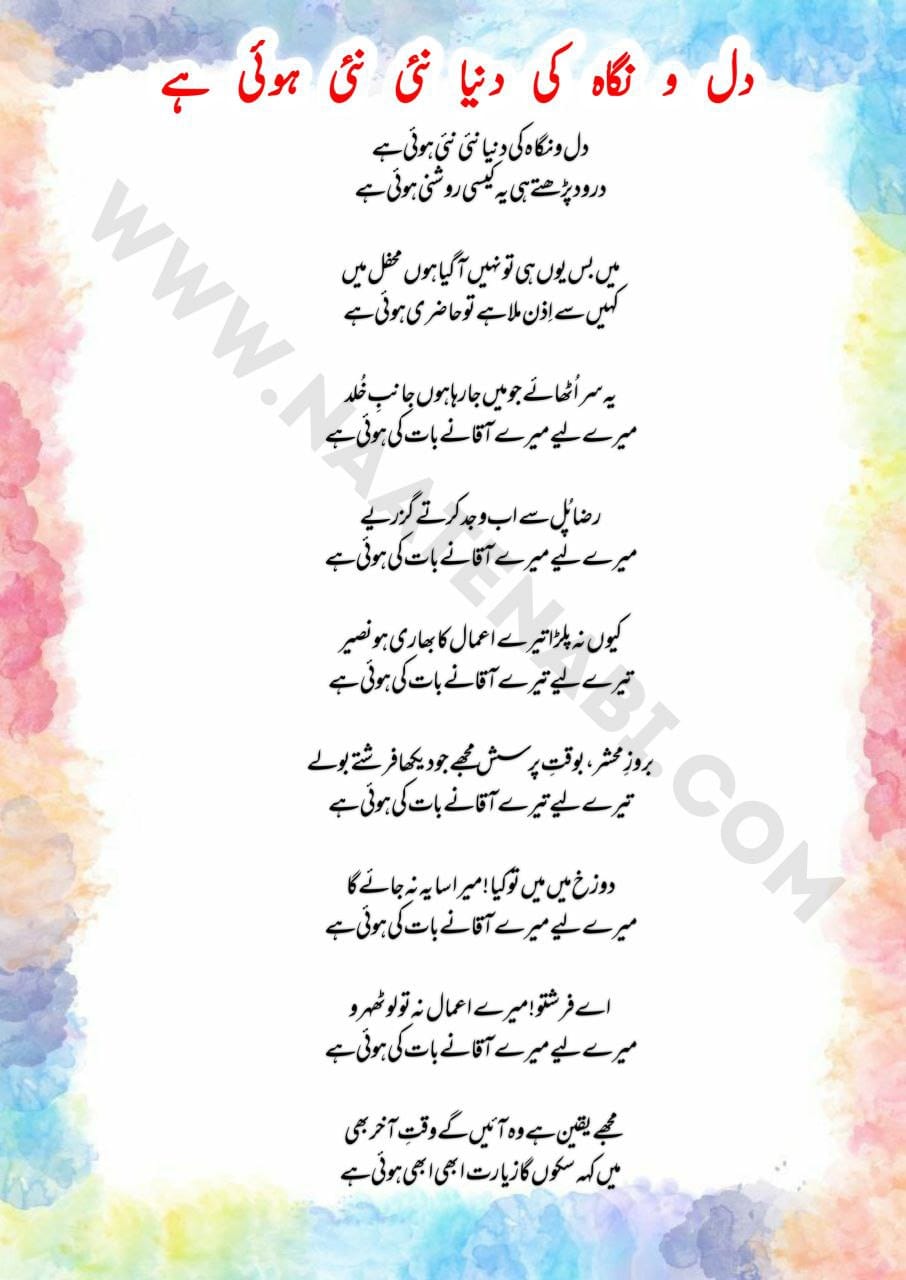 دل و نگاہ کی دنیا نئی نئی ہوئی ہے
دل و نگاہ کی دنیا نئی نئی ہوئی ہے
درود پڑھتے ہی یہ کیسی روشنی ہوئی ہے
میں بس یوں ہی تو نہیں آ گیا ہوں محفل میں
کہیں سے اِذن ملا ہے تو حاضری ہوئی ہے
یہ سر اُٹھائے جو میں جا رہا ہوں جانبِ خُلد
میرے لیے میرے آقا نے بات کی ہوئی ہے
رضا پُل سے اب وجد کرتے گزریے
میرے لیے میرے آقا نے بات کی ہوئی ہے
کیوں نہ پلڑا تیرے اعمال کا بھاری ہو نصیر
تیرے لیے تیرے آقا نے بات کی ہوئی ہے
بروزِ محشر، بوقتِ پرسش مجھے جو دیکھا فرشتے بولے
تیرے لیے تیرے آقا نے بات کی ہوئی ہے
دوزخ میں میں تو کیا! میرا سایہ نہ جائے گا
میرے لیے میرے آقا نے بات کی ہوئی ہے
اے فرشتو! میرے اعمال نہ تولو ٹھہرو
میرے لیے میرے آقا نے بات کی ہوئی ہے
مجھے یقین ہے وہ آئیں گے وقتِ آخر بھی
میں کہہ سکوں گا زیارت ابھی ابھی ہوئی ہے
WWW.NAATENABI.COM